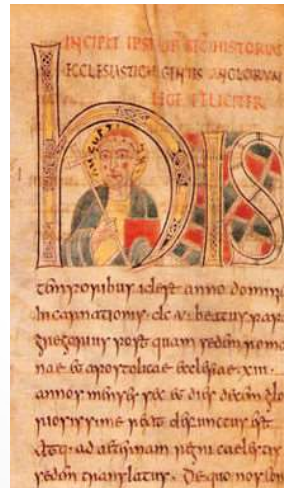 INCIPIT IPSIUS
HISTORIAE
ECCLESIASTICAE GENTIS ANGLORUM
LIBER
FELICITER
AUGUS
HIS
temporibus id est anno dominicae
incarnationis dc v beatus papa
gregorius post quam sedem roma
nae et apostolicae ecclesiae xiii
annos menses sex et dies decem glo
riosissime rexit defunctus est
atque ad aeternam regni caelestis
sedem translatus De quo nos con